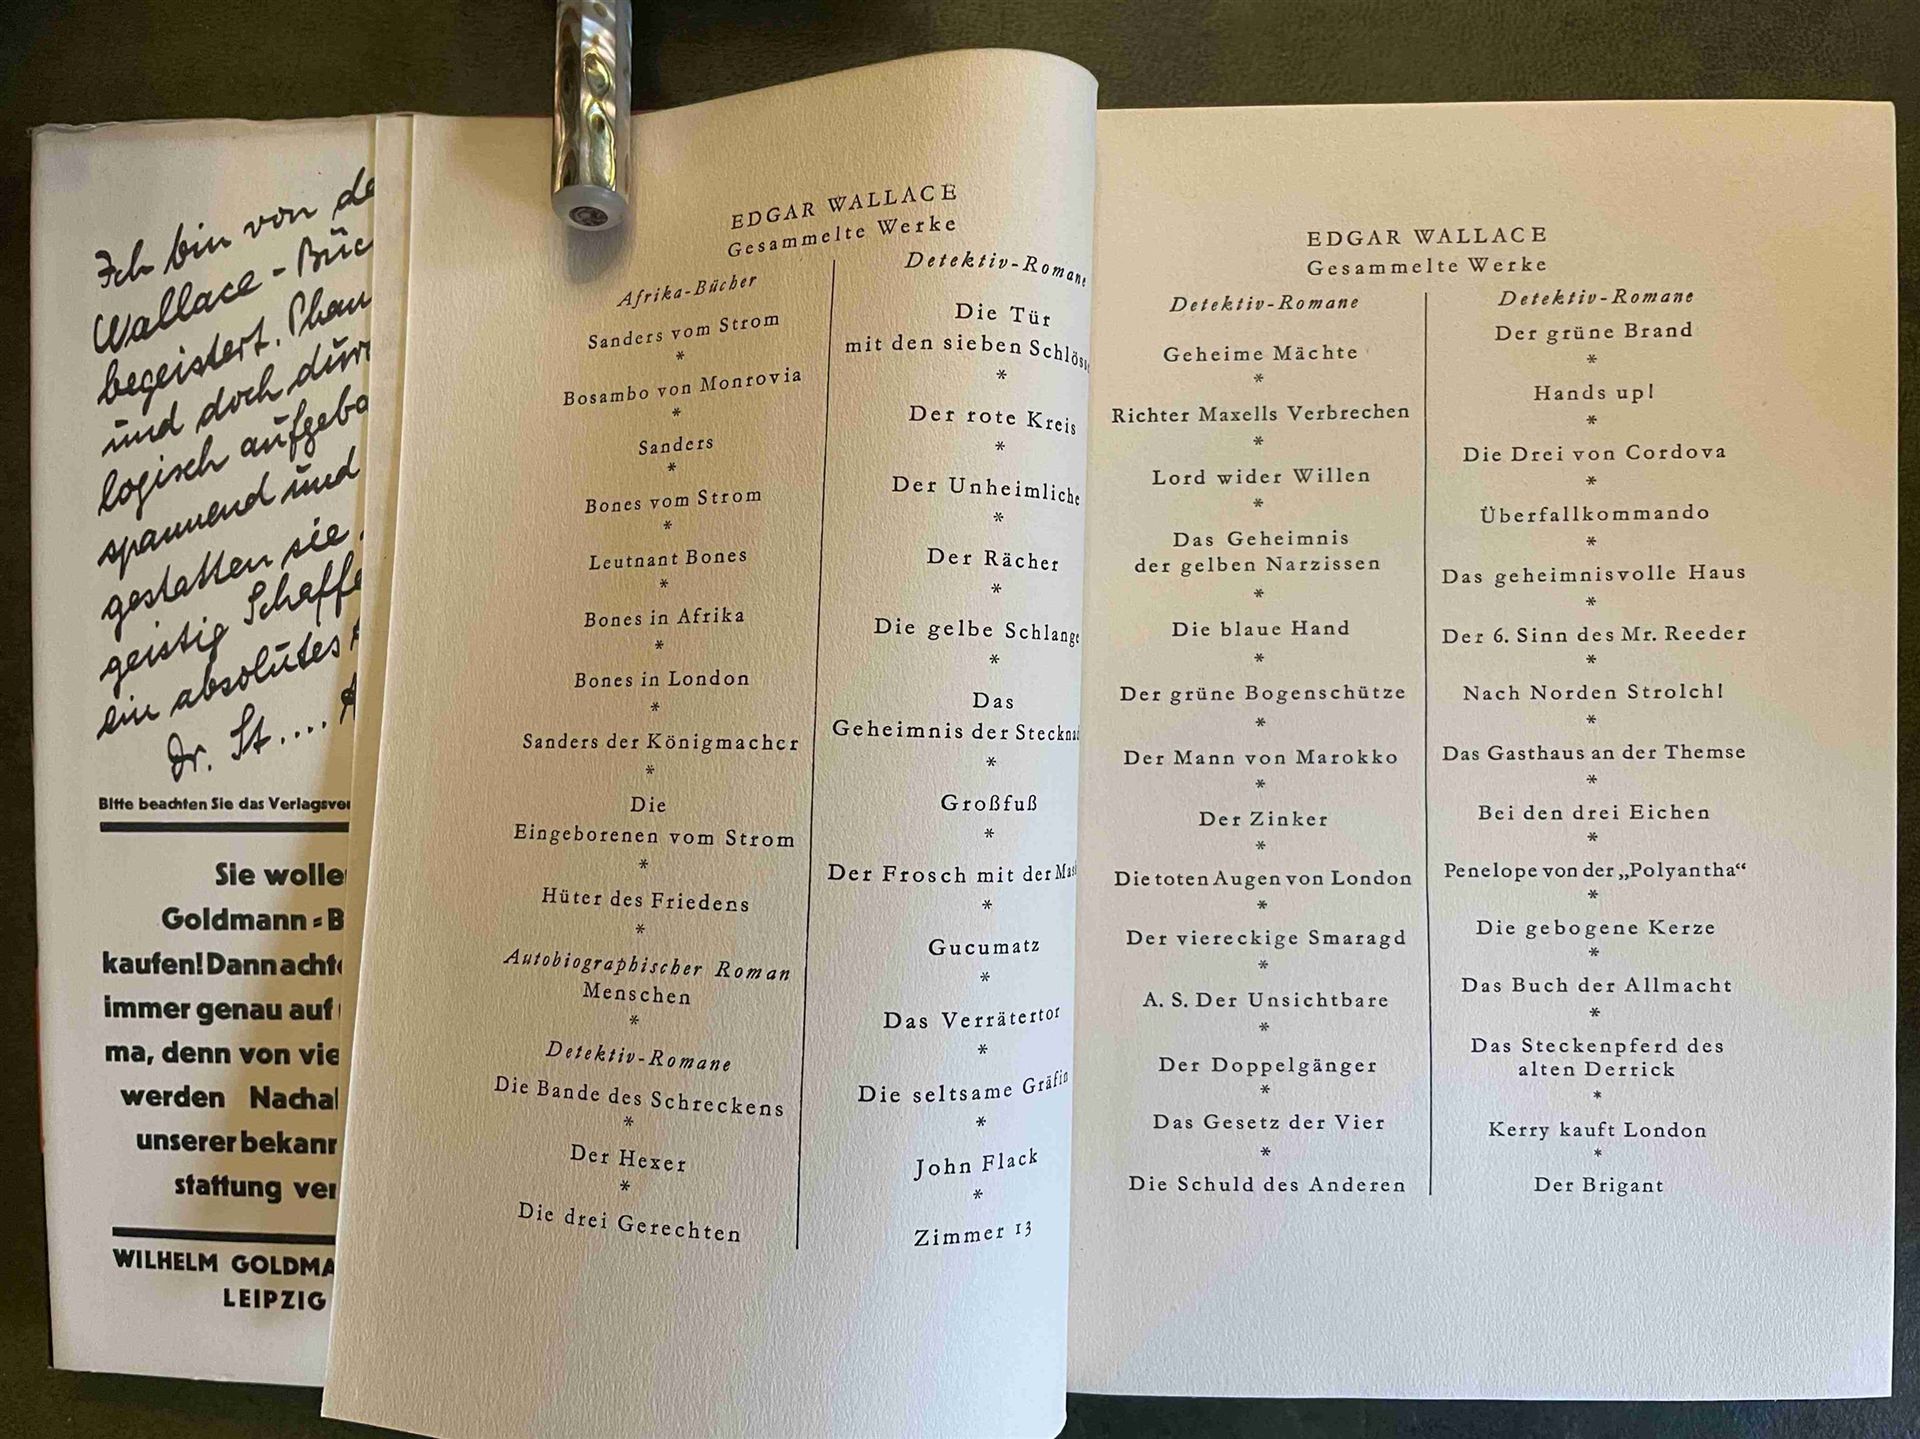 Ich bin von
Wallace-
begeistert.
und doch
logisch
spannend und
gestatten sie
geistig
ein absolutes
Dr. St....
Bitte beachten Sie das
Sie
Goldmann-
kaufen! Dann
immer genau auf
denn von
werden
unserer
WILHELM
LEIPZIG
EDGAR WALLACE
Gesammelte Werke
Afrika-Bücher
Sanders vom Strom
*
Bosambo von Monrovia
*
Sanders
*
Bones vom Strom
*
Leutnant Bones
*
Bones in Afrika
*
Bones in London
*
Sanders der Königmacher
*
Die
Eingeborenen vom Strom
*
Hüter des Friedens
*
Autobiographischer Roman
Menschen
*
Detektiv-Romane
Die Bande des Schreckens
*
Der Hexer
*
Die drei Gerechten
Detektiv-Romane
Die Tür
mit den sieben
*
Der rote Kreis
*
Der Unheimliche
*
Der Rächer
*
Die gelbe Schlange
*
Das
Geheimnis der
*
Großfuß
*
Der Frosch mit der
*
Gucumatz
*
Das Verrätertor
*
Die seltsame Gräfin
*
John Flack
*
Zimmer 13
EDGAR WALLACE
Gesammelte Werke
Detektiv-Romane
Geheime Mächte
*
Richter Maxells Verbrechen
*
Lord wider Willen
*
Das Geheimnis
der gelben Narzissen
*
Die blaue Hand
*
Der grüne Bogenschütze
*
Der Mann von Marokko
*
Der Zinker
*
Die toten Augen von London
*
Der viereckige Smaragd
*
A. S. Der Unsichtbare
*
Der Doppelgänger
*
Das Gesetz der Vier
*
Die Schuld des Anderen
Detektiv-Romane
Der grüne Brand
*
Hands up!
*
Die Drei von Cordova
*
Überfallkommando
*
Das geheimnisvolle Haus
*
Der 6. Sinn des Mr. Reeder
*
Nach Norden Strolch!
*
Das Gasthaus an der Themse
*
Bei den drei Eichen
*
Penelope von der „Polyantha“
*
Die gebogene Kerze
*
Das Buch der Allmacht
*
Das Steckenpferd des
alten Derrick
*
Kerry kauft London
*
Der Brigant